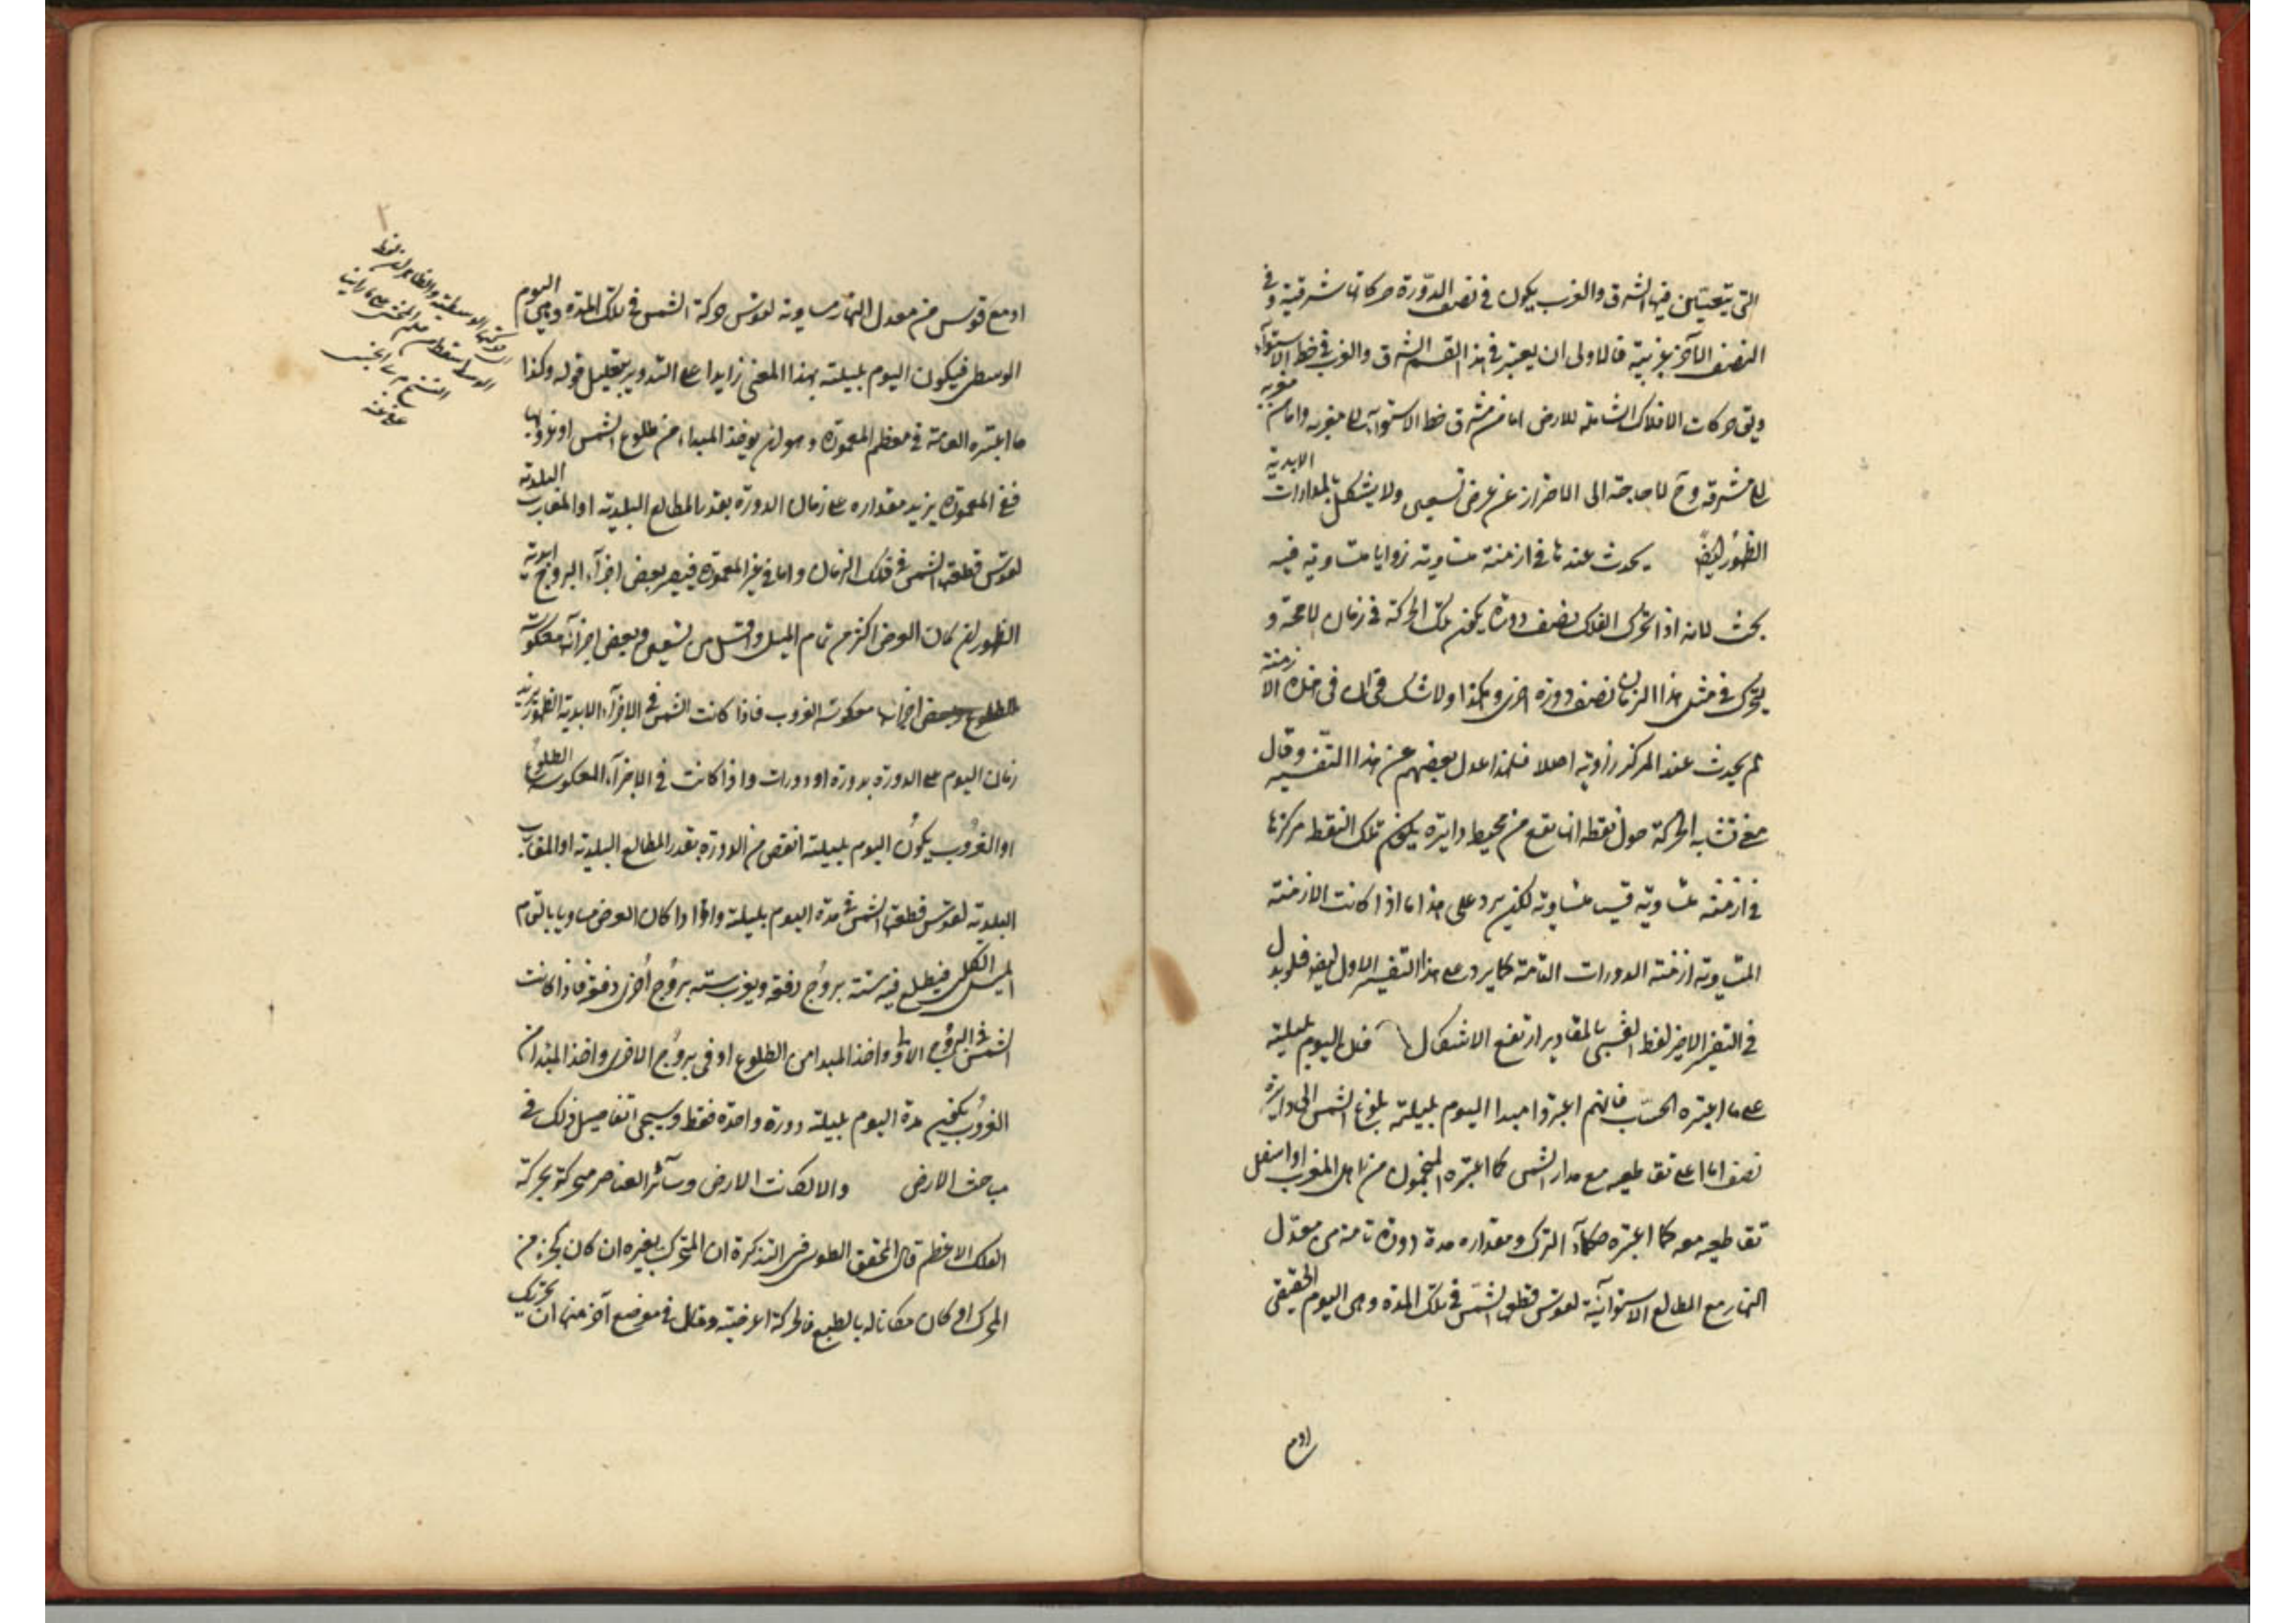 التى يتعين فيها الشرق والغرب يكون فى نصف الدورة حركاتها شرقية وفى
النصف الآخر غربية فالاولى ان يعتبر فى هذا القسم الشرق والغرب فى خط الاستوآء
ويق حركات الافلاك الشاملة للارض اما من مشرق خط الاستوآء الى مغربه واما من مغربه
الى مشرقه وح لا حاجة الى الاحتراز عن عرض تسعين ولا يشكل بالمدارات الابدية
الظهور ايضا يحدث عندها فى ازمنة متساوية زوايا متساوية فيه
بحث لانه اذا تحرك الفلك نصف دورة يمكن تلك الحركة فى زمان لا محة و
يتحرك فى مثل هذا الزمان نصف دورة اخرى وهكذا ولا شك فى ان فى هذه الازمنة
لم يحدث عند المركز زاوية اصلا فلهذا عدل بعضهم عن هذا التفسير وقال
معنى تشابه الحركة حول نقطة انها تقع من محيط دايرة يكون تلك النقطة مركزها
فى ازمنة متساوية قسى متساوية لكن يرد على هذا ما اذا كانت الازمنة
المتساوية ازمنة الدورات التامة كما يرد على هذا التفسير الاول ايضا فلو بدل
فى التفسير الاخير لفظ القسى بالمقادير ارتفع الاشكال فل اليوم بليلته
على ما اعتبره الحساب فانهم اعتبروا مبدا اليوم بليلته بلوغ الشمس الى دايرة
نصف اما اعلى تقاطيعه مع مدار الشمس كما اعتبره المنجمون من اهل المغرب او اسفل
تقاطيعه معه كما اعتبره حكمآء الترك ومقداره مدة دورة تامة من معدل
النهار مع المطالع الاستوآئية لقوس قطعها الشمس فى تلك المدة وهى اليوم الحقيقى
او مع
او مع قوس من معدل النهار مساوية لقوس حركة الشمس فى تلك المدة وهى اليوم
الوسطى فيكون اليوم بليلته بهذا المعنى زايدا على الدور بتعليل قوله وكذا
ما اعتبره العامة فى معظم المعمورة وهو ان يوخذ المبداء من طلوع الشمس او غروبها
ففى المعمورة يزيد مقداره على زمان الدورة بقدر المطالع البلدية او المغارب البلدية
لقوس قطعها الشمس فى تلك الزمان واما فى غير المعمورة فيصير بعض اجزآء البروج ابدية
الظهور ان كان العرض اكثر من تمام الميل واقل من تسعين وبعض اجزآئه معكوسة
الطلوع وبعض اجزائها معكوسة الغروب فاذا كانت الشمس فى الاجزآء الابدية الظهور يزيد
زمان اليوم على الدورة بدورة او دورات واذا كانت فى الاجزآء المعكوسة الطلوع
او الغروب يكون اليوم بليلته انقص من الدورة بقدر المطالع البلدية او المغارب
البلدية لقوس قطعها الشمس فى مدة اليوم بليلته واما اذا كان العرض مساويا بالتمام
الميل الكلى فيطلع فيه ستة بروج دفعة ويغرب ستة بروج اخرى دفعة فاذا كانت
الشمس فى البروج الاول واخذ المبدا من الطلوع او فى بروج الاخرى واخذ المبدا من
الغروب يكون مدة اليوم بليلته دورة واحدة فقط وسيجى تفاصيل ذلك فى
مباحث الارض والا لكانت الارض وسآئر العناصر متحركة بحركة
الفلك الاعظم قال المحقق الطوسى فى التذكرة ان المتحرك بغيره ان كان بجزء من
المحرك او كان مكانا له بالطبع فالحركة عرضية وقال فى موضع آخر منها ان تحريك